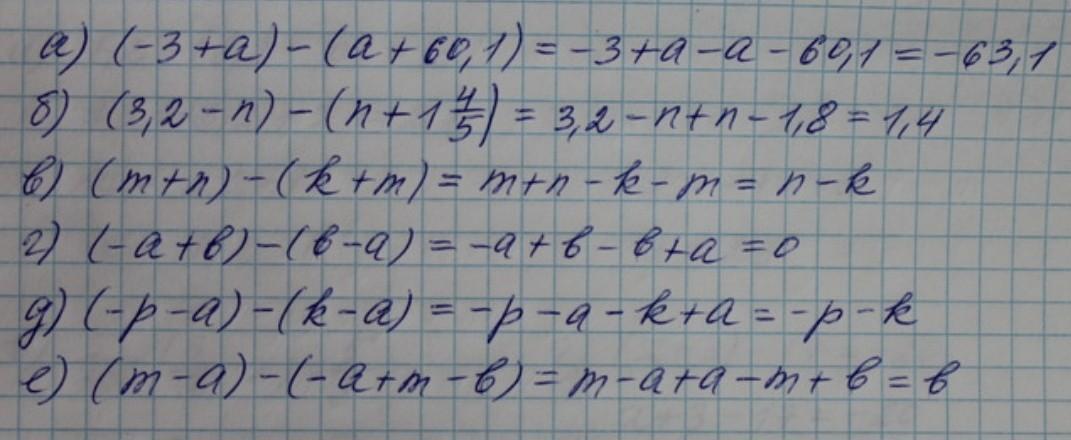 а) (-3+а)-(а+60,1)=-3+а-а-60,1=-63,1
б) (3,2-n)-(n+1 4/5)=3,2-n+n-1,8=1,4
в) (m+n)-(k+m)=m+n-k-m=n-k
г) (-а+в)-(в-а)=-а+в-в+а=0
д) (-р-а)-(k-а)=-р-а-k+а=-р-k
е) (m-а)-(-а+m-в)=m-а+а-m+в=в